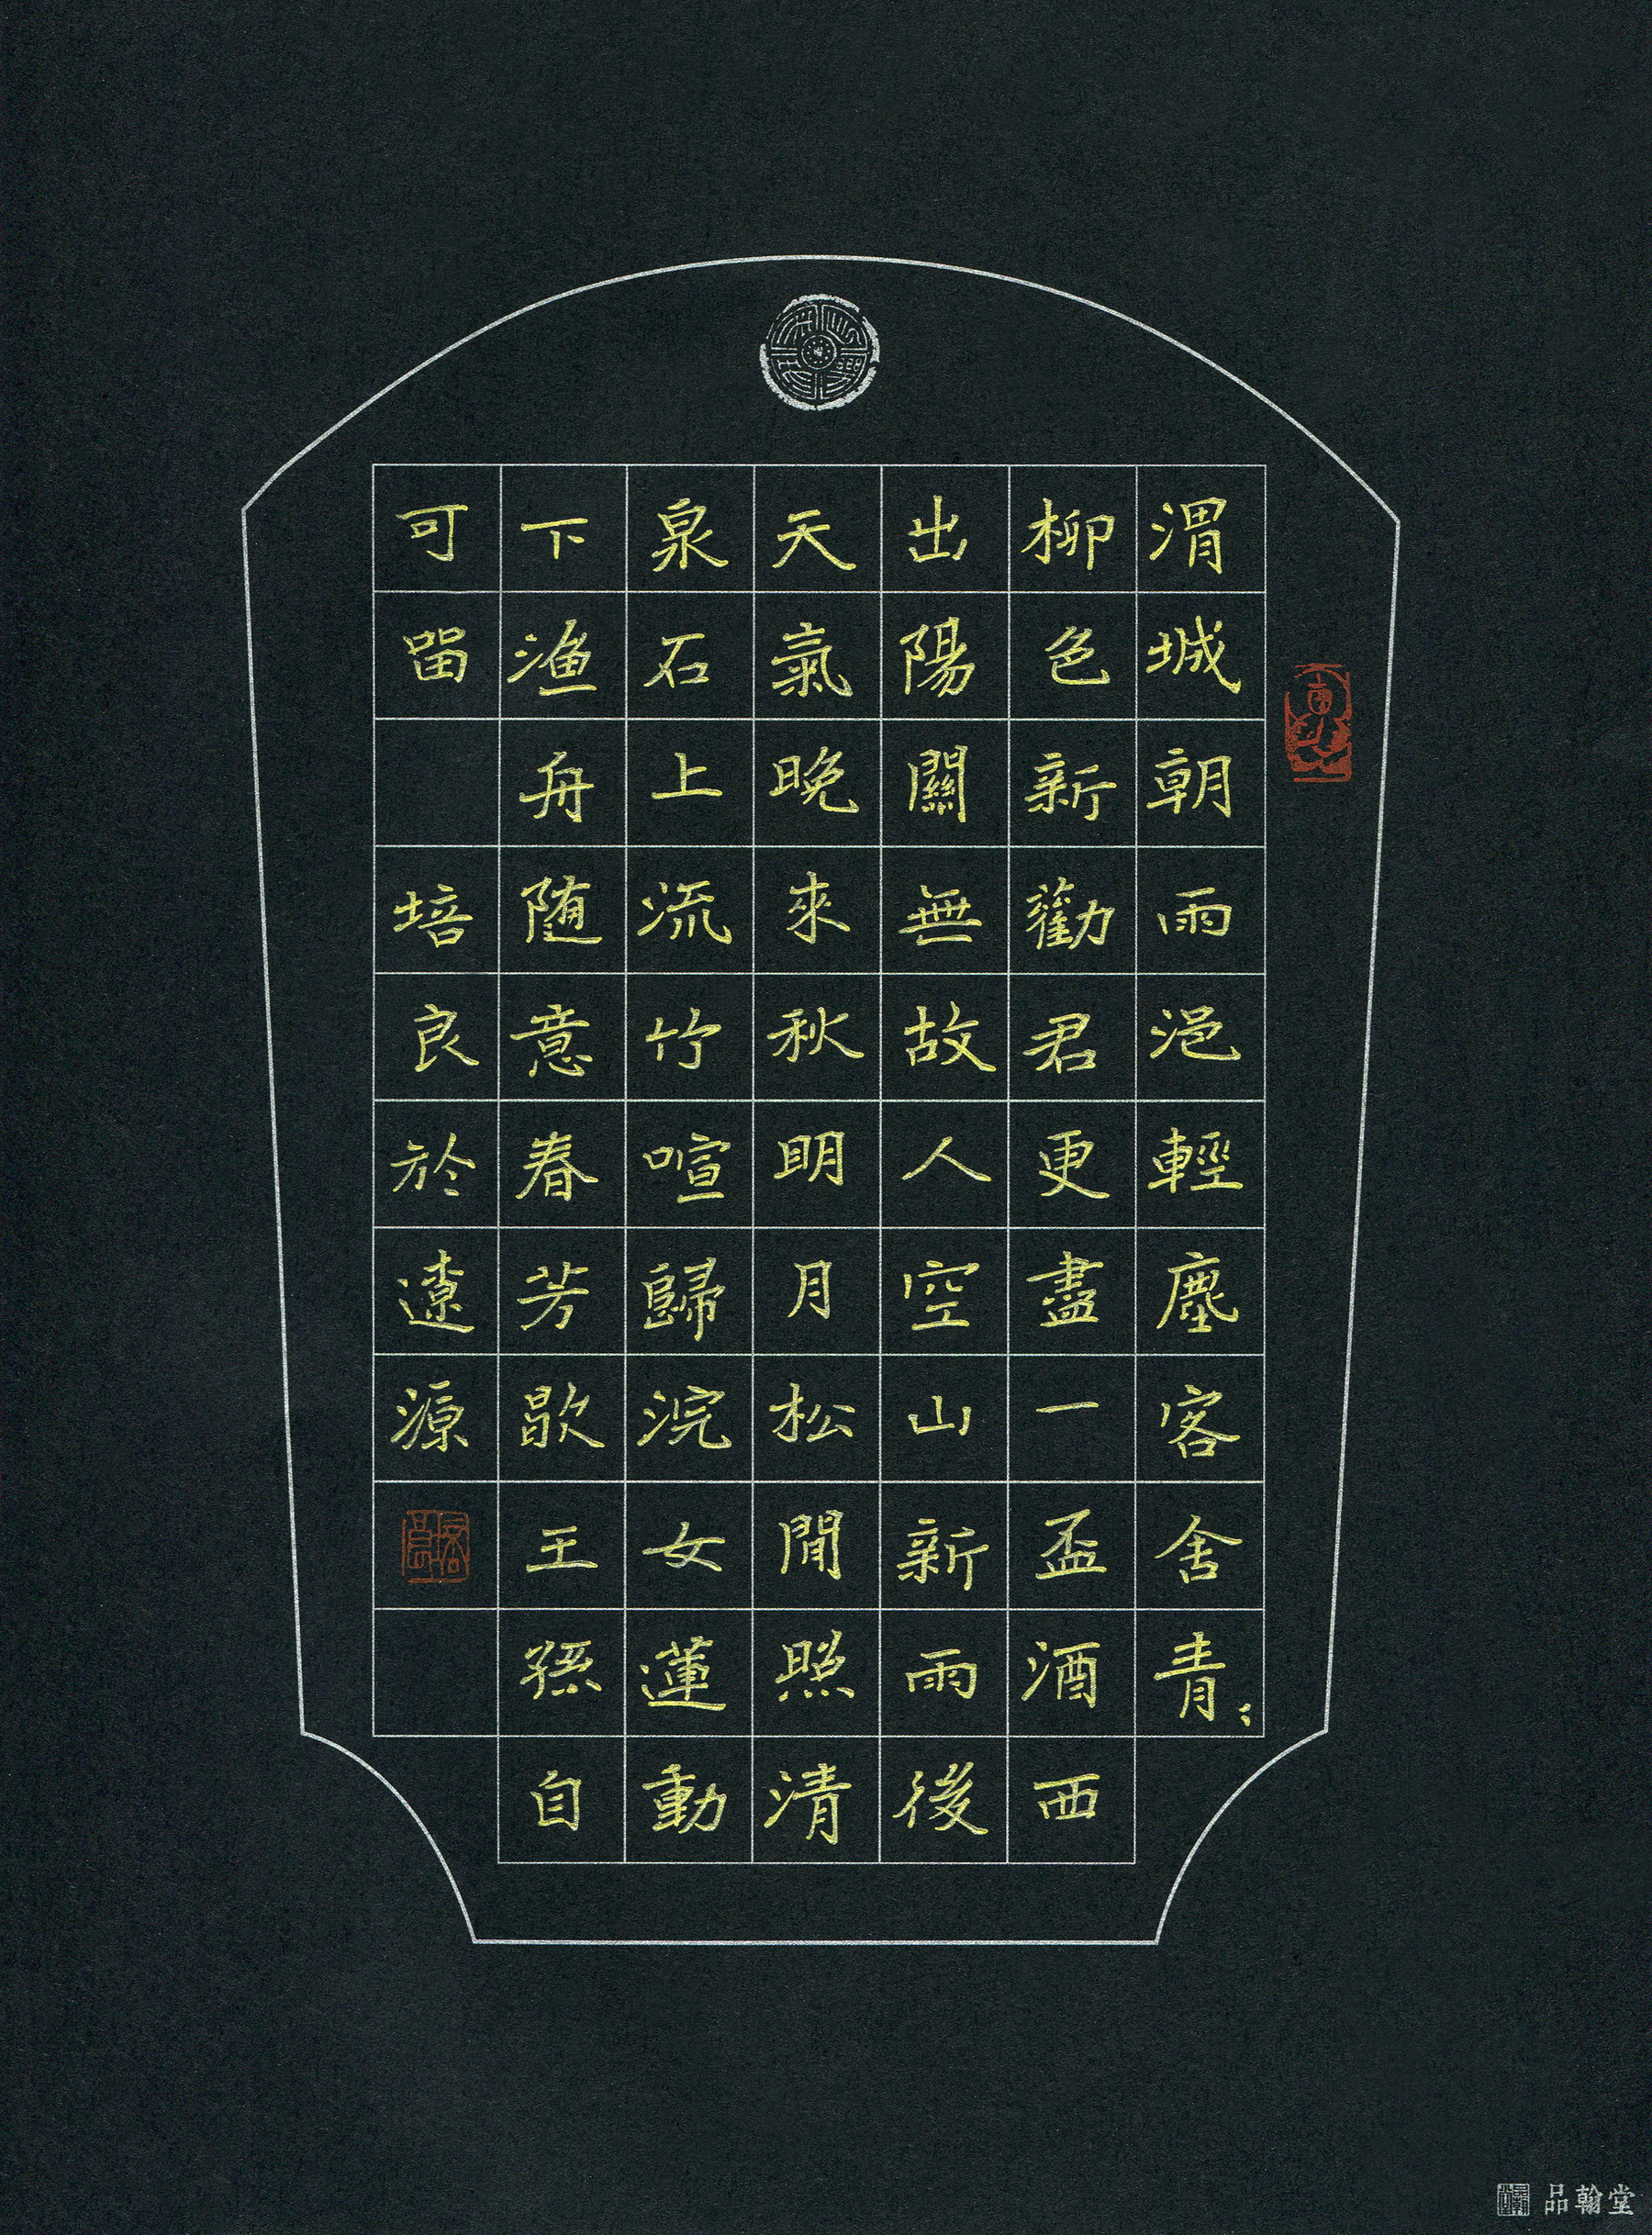 渭城朝雨浥輕塵客舍青〻
柳色新勸君更盡一盃酒西
出陽關無故人空山新雨後
天氣晚來秋明月松閒照清
泉石上流竹喧歸浣女蓮動
下漁舟随意春芳歇王孫自
可留
培良於遼源
品翰堂